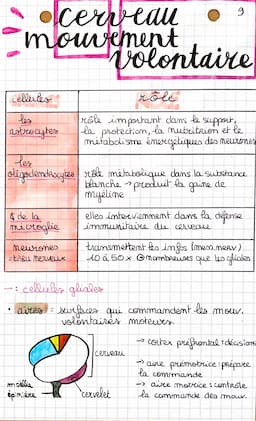 cerveau
9
mouvement
volontaire
cellules rôle
les astrocytes
rôle important dans le support,
la protection, la nutrition et le
métabolisme énergétiques des neurones
les oligodendrocytes
rôle métabolique dans la substance
blanche → produit la gaine de
myéline
¢ de la microglie
elles interviennent dans la défense
immunitaire du cerveau
neurones
transmettent les infos (mess. nerv)
10 à 50 x moins nombreuses que les gliales
— : cellules gliales
• aires = surfaces qui commandent les mouv.
volontaires moteurs.
→ cortex préfrontal : décisions
→ aire prémotrice : prépare
la commande
→ aire motrice : contrôle
la commande des mouv.
cerveau
moelle
épinière
cervelet